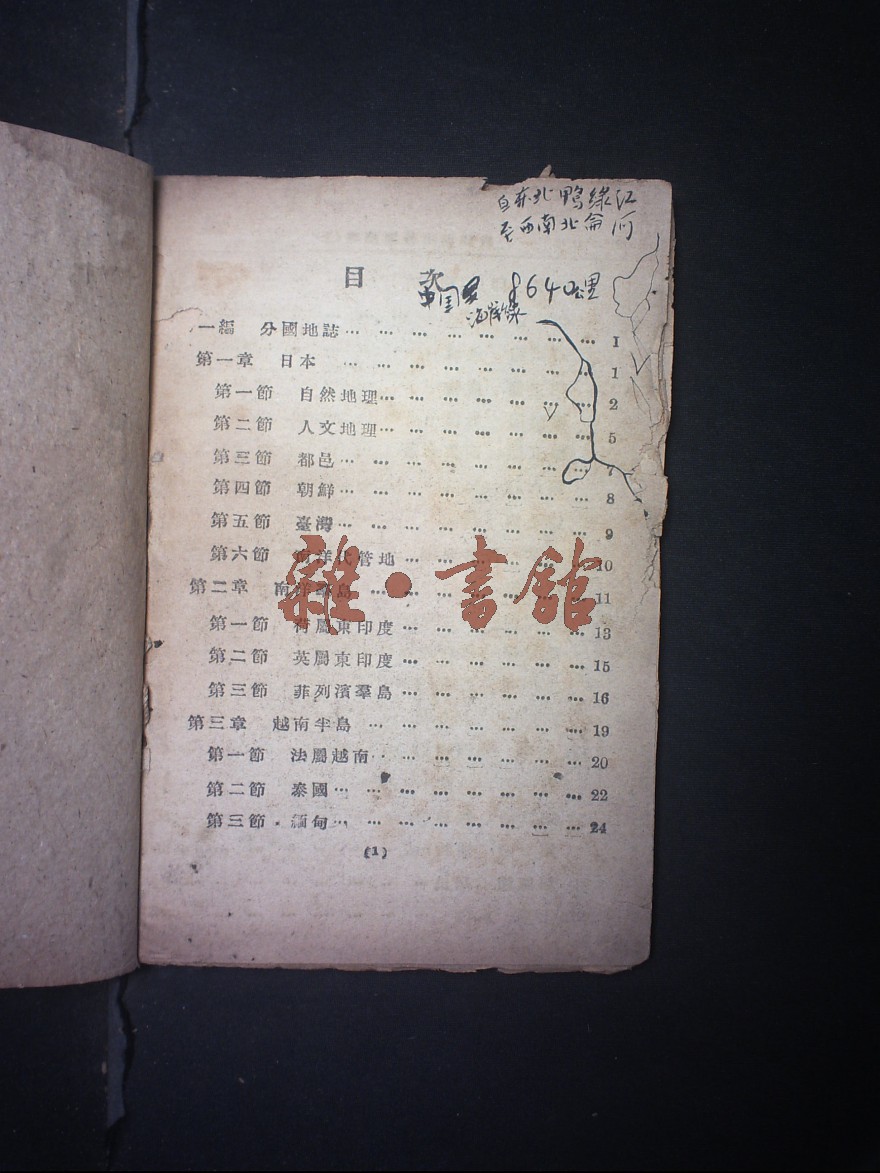 自東北鴨綠江
至西南北侖河
目 次
中国 8640公里
海岸線
一編 分國地誌… … … … … … … … 1
第一章 日本 … … … … … … … … 1
第一節 自然地理… … … … … … … 2
第二節 人文地理… … … … … … … 5
第三節 都邑… … … … … … … … 7
第四節 朝鮮… … … … … … … … 8
第五節 臺灣… … … … … … … … 9
第六節 南洋代管地 … … … … … … 10
第二章 南洋羣島 … … … … … … … 11
第一節 荷屬東印度… … … … … … 13
第二節 英屬東印度… … … … … … 15
第三節 菲列濱羣島… … … … … … 16
第三章 越南半島 … … … … … … … 19
第一節 法屬越南… … … … … … … 20
第二節 泰國… … … … … … … … 22
第三節 緬甸… … … … … … … … 24
(1)
雜·書館